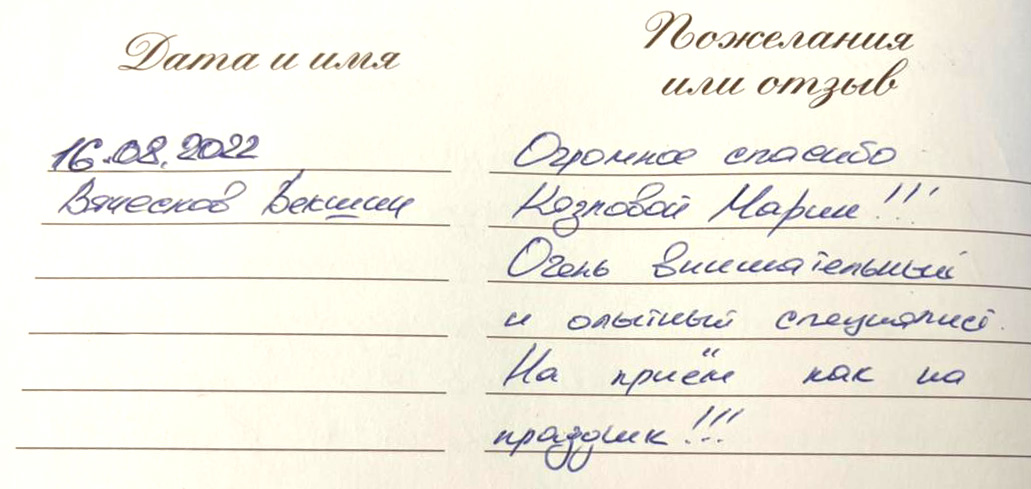 Дата и имя
Пожелания
или отзыв
16.08.2022
Вячеслав Векшин
Огромное спасибо
Козловой Марии!!!
Очень внимательный
и опытный специалист.
На приём как на
праздник!!!